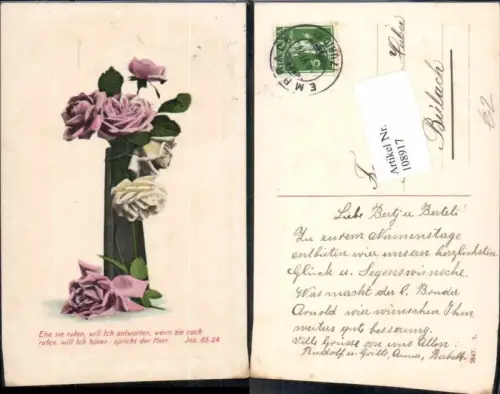 Ehe sie rufen, will Ich antworten, wenn sie noch
rufen, will Ich hören. spricht der Herr. Jes. 65.24.
5
Artikel Nr.
108917
Bülach
Liebe Bertj u Berteli!
Zu eurem Namenstage
entbieten wir unsern herzlichsten
Glück u. Segenswünsche.
Was macht der l. Bruder
Arnold wir wünschen Ihm
weiters gute besserung.
Viele Grüsse von uns Allen:
Rudolf u. Anna,